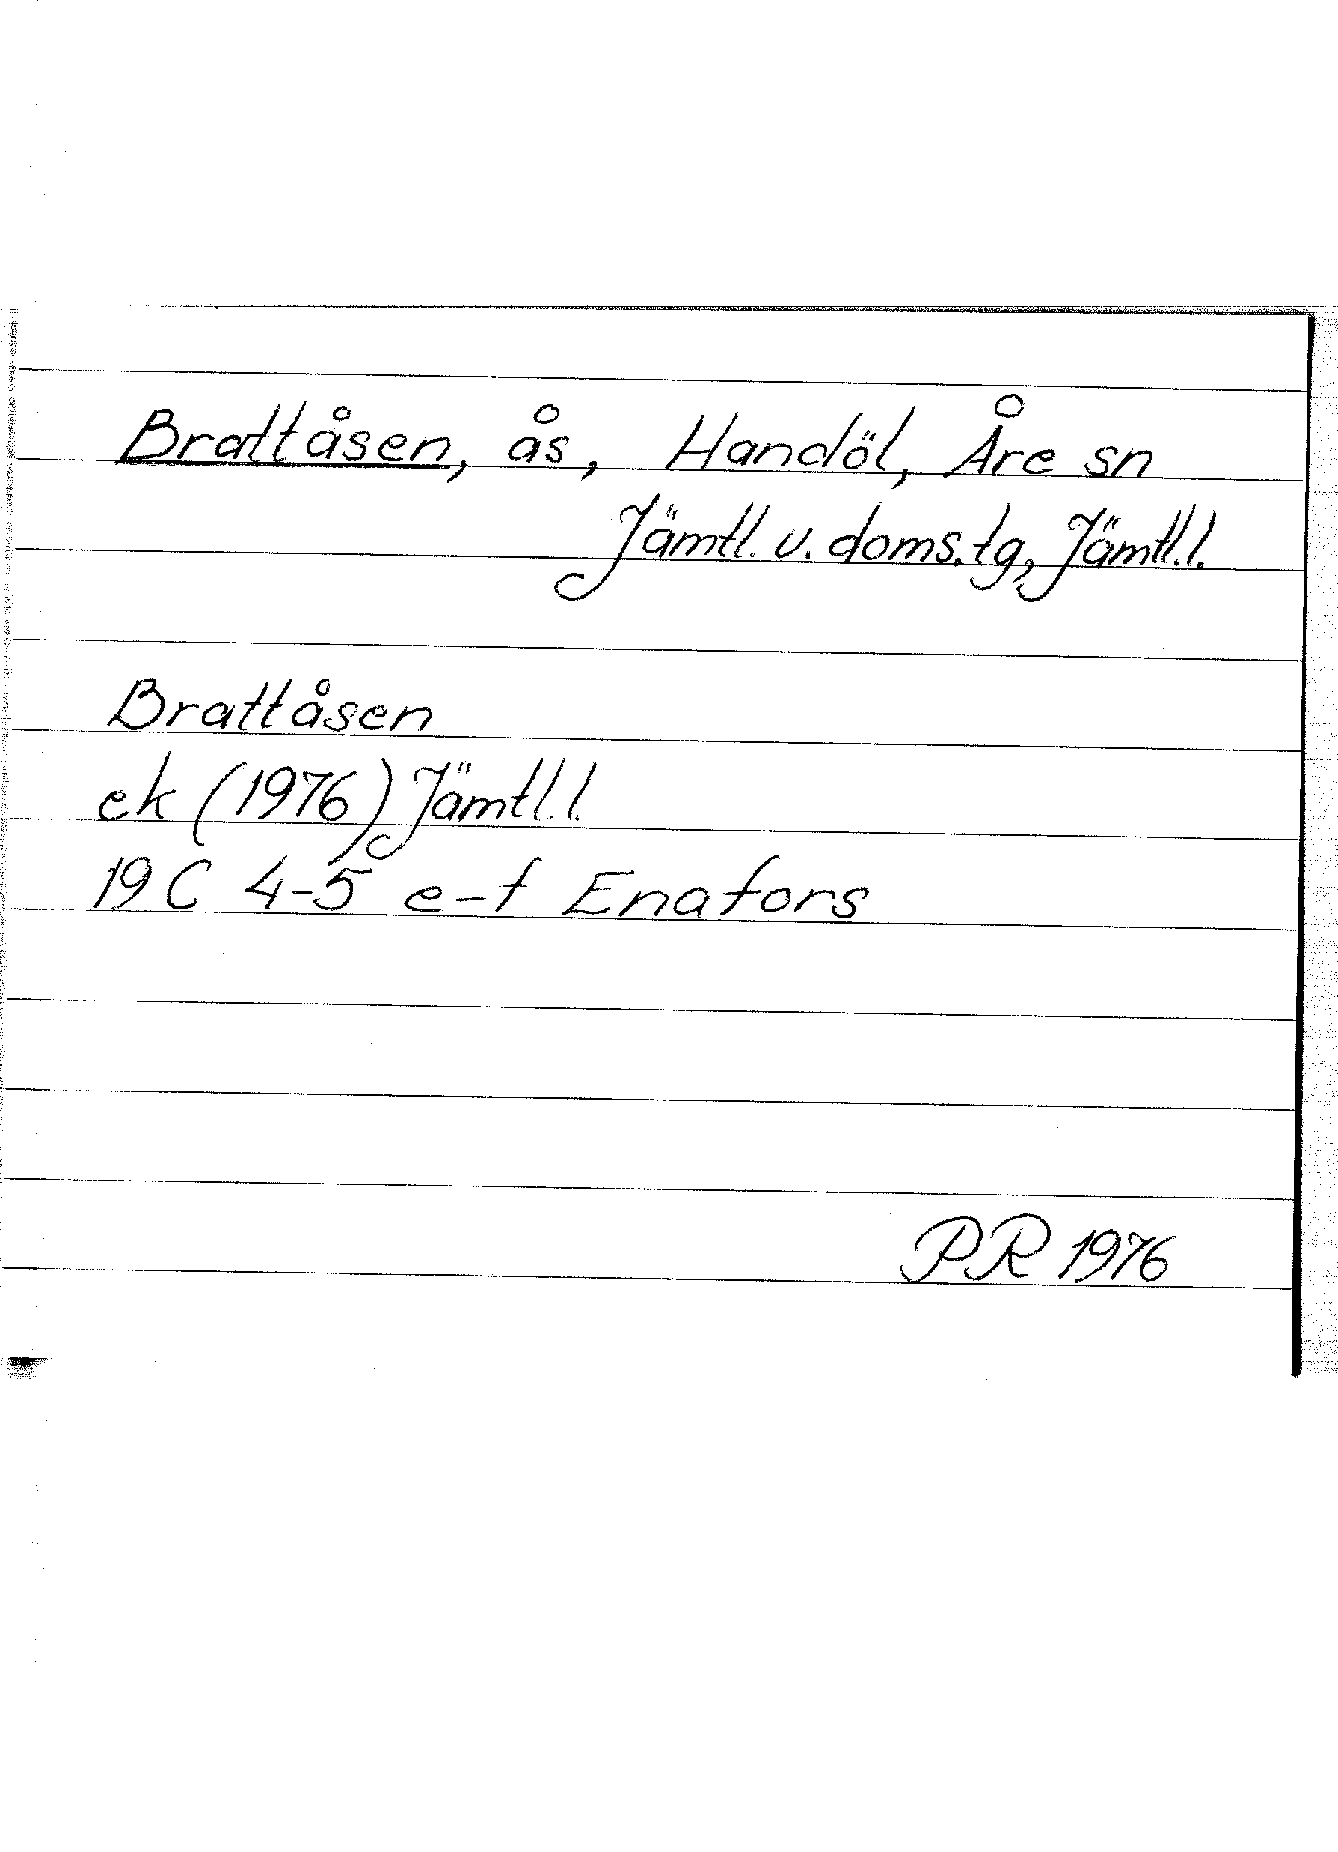 Brattåsen, ås, Handöl, Åre sn
Jämtl. v. doms.tg, Jämtl.l.
Brattåsen
ek (1976) Jämtl.l.
19 C 4-5 e-f Enafors
PR 1976